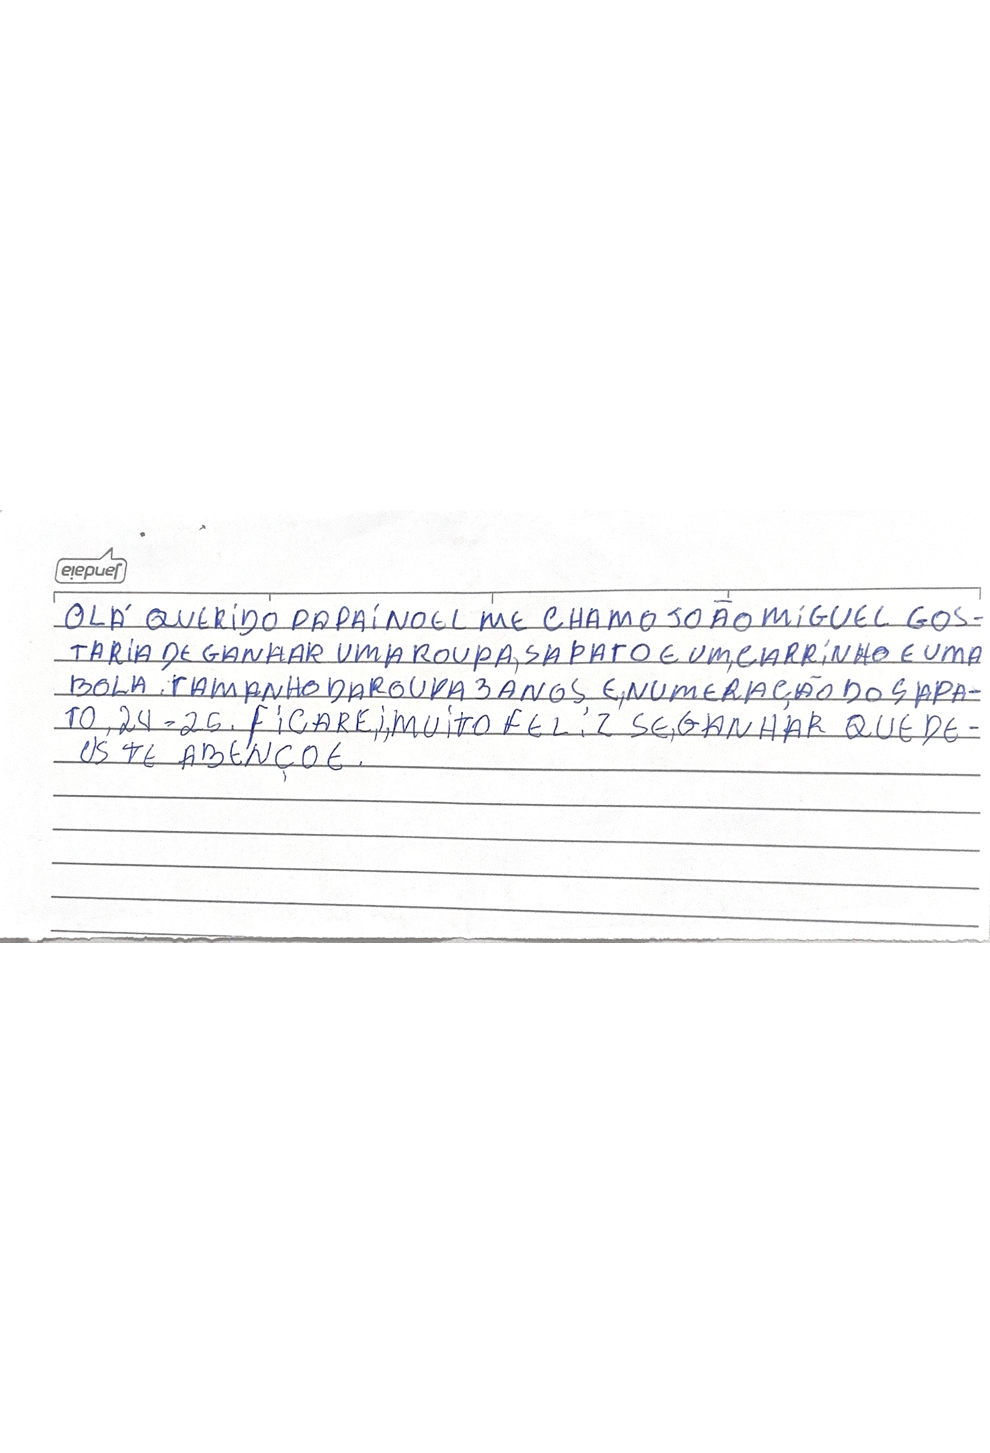 jandaia
OLÁ QUERIDO PAPAI NOEL ME CHAMO JOÃO MIGUEL GOS-
TARIA DE GANHAR UMA ROUPA, SAPATO E UM, CARRINHO E UMA
BOLA. TAMANHO DA ROUPA 3 ANOS E, NUMERAÇÃO DO SAPA-
TO, 24-25. FICAREI, MUITO FELIZ SE, GANHAR QUE DE-
US TE ABENÇOE.